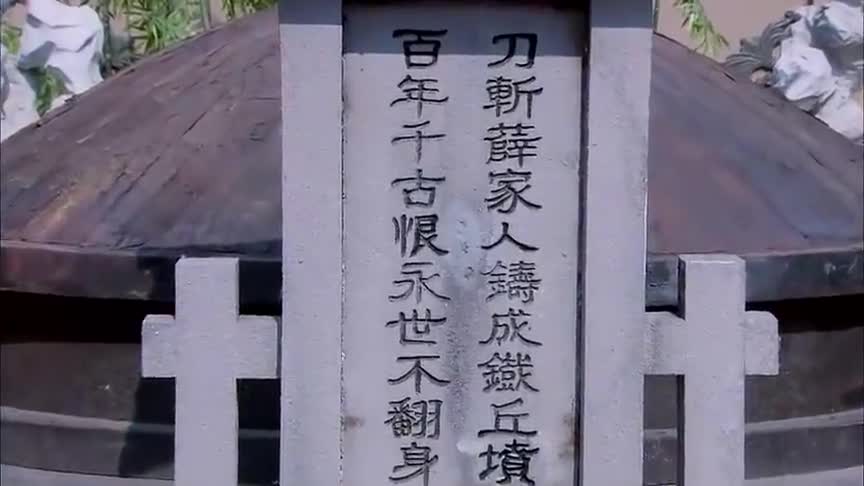 刀斬薛家人鑄成鐵丘墳
百年千古恨永世不翻身